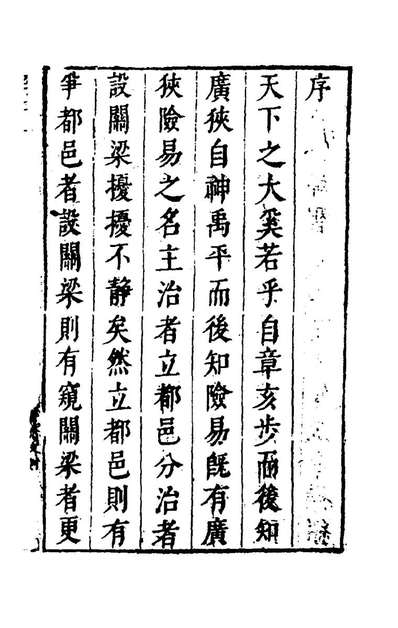 序
天下之大奚若乎自章亥步而後知
廣狹自神禹平而後知險易旣有廣
狹險易之名主治者立都邑分治者
設關梁擾擾不靜矣然立都邑則有
爭都邑者設關梁則有窺關梁者更